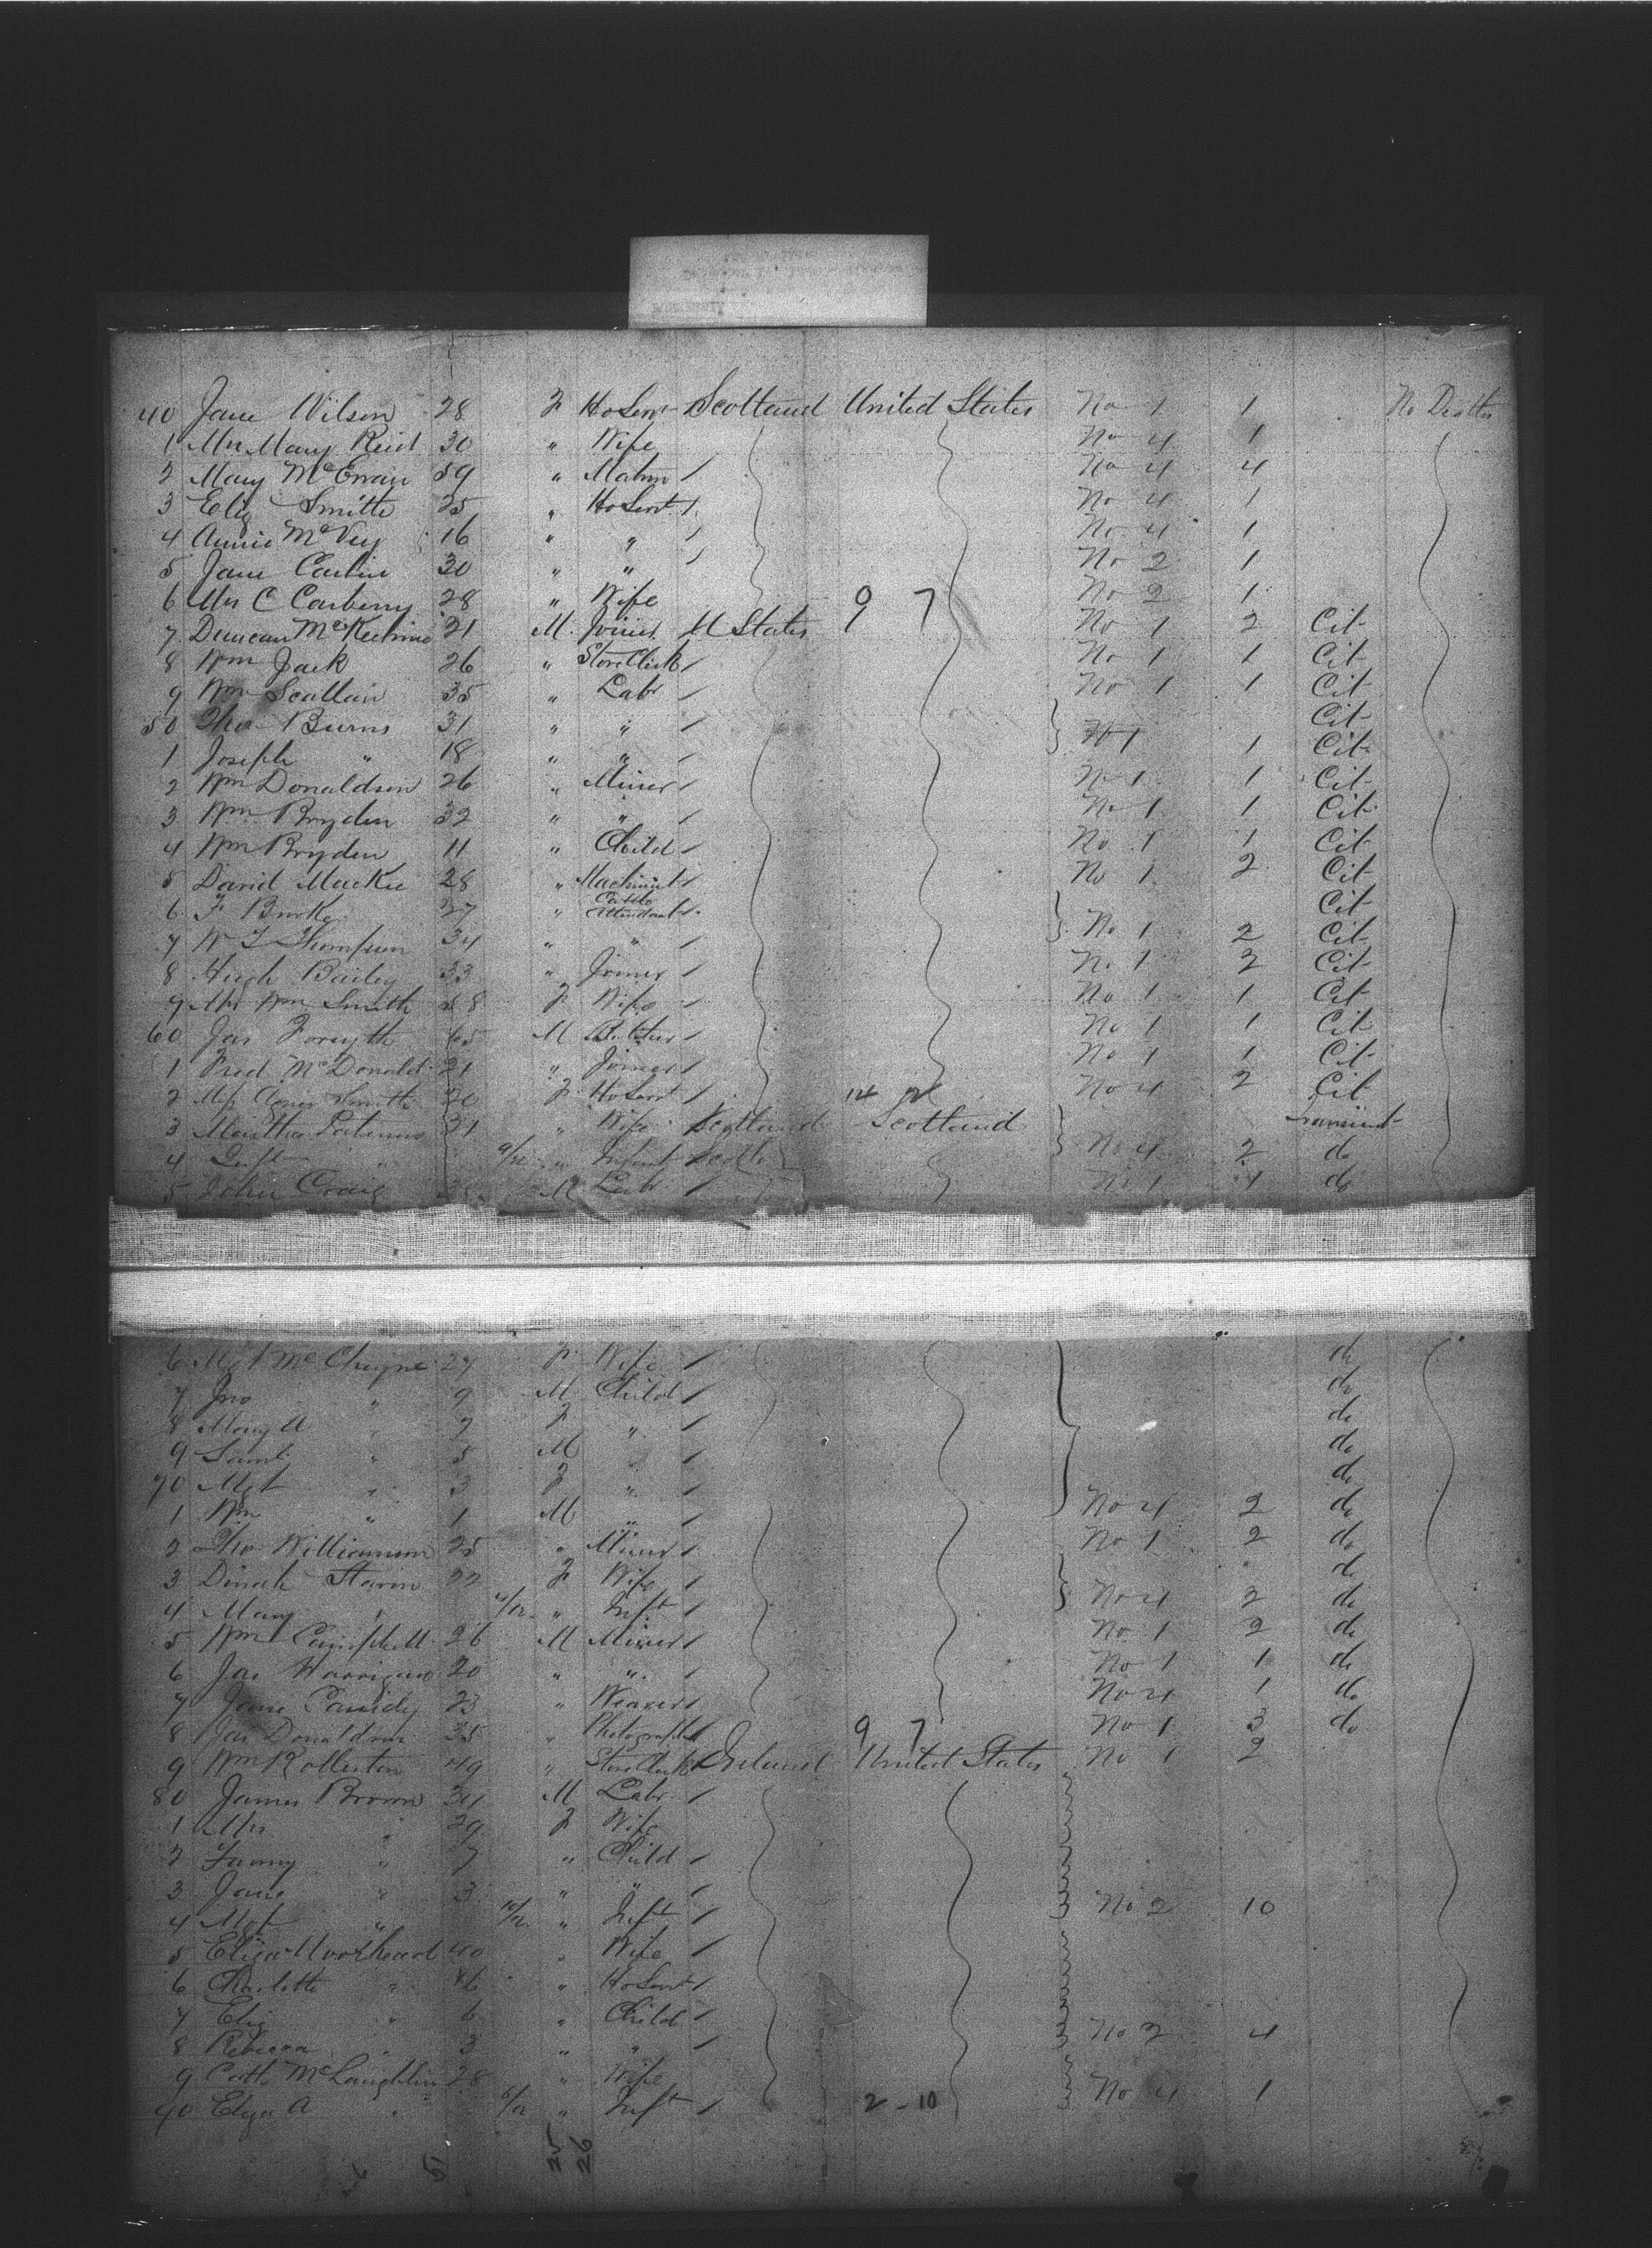 40 Jane Wilson 28 F HoServt Scotland United States No 1 1 No Deaths
1 Mrs Mary Reid 30 " Wife No 4 1
2 Mary McEwan 59 " Matron / No 4 4
3 Eliz Smith 25 " HoServt / No 4 1
4 Annie McVey 16 " " / No 4 1
5 Jane 30 " " / No 2 1
6 Mrs C Carberry 28 " Wife 9 7 No 2 1
7 Duncan McKechnie 21 M Joiner U States No 1 2 Cit
8 Wm Jack 26 " Store Clerk / No 1 1 Cit
9 Wm Scallan 35 " Labr / No 1 1 Cit
50 Thos Burns 31 " " / Cit
1 Joseph " 18 " " / No 1 1 Cit
2 Wm Donaldson 26 " Miner / No 1 1 Cit
3 Wm Bryden 32 " " / No 1 1 Cit
4 Wm Bryden 11 " Child / No 1 1 Cit
5 David Mackie 28 " Machinist / No 1 2 Cit
6 F Burke 27 " Cattle Attendant / Cit
7 W T Thompson 34 " " / No 1 2 Cit
8 Hugh Bailey 33 " Joiner / No 1 2 Cit
9 Mrs Wm Smith F Wife / No 1 1 Cit
60 Jas Forsyth 65 M / No 1 1 Cit
1 Fred McDonald 21 " Joiner / No 1 1 Cit
2 Smith 20 F HoServt / 14 No 4 2 Cit
3 Martha 21 " Wife Scotland Scotland Transient
4 Inft " 9/12 " Infant Scotl No 4 2 do
5 John Craig M Labr / No 1 1 do
6 Mgt McCheyne 27 F Wife / do
7 Jno " 9 M Child / do
8 Mary A " 7 F " / do
9 Saml " 5 M / do
70 Mgt " 3 F " / do
1 Wm " 1 M " / No 4 2 do
2 Thos Williamson 25 " Miner / No 1 2 do
3 Dinah 22 F Wife / do
4 Mary " " Inft / No 4 2 do
5 Wm Campbell 26 M Miner / No 1 2 do
6 Jas Harrigan 20 " " / No 1 1 do
7 Jane Cassidy 23 " Weaver / No 4 1 do
8 Jas Donaldson 35 " Photographer / 9 7 No 1 3 do
9 Wm Rollerton 49 " Store Clerk / Ireland United States No 1 2
80 James Brown 34 M Labr /
1 Mrs " 29 F Wife
2 Fanny " 7 " Child /
3 Jane " 3 " " /
4 Mgt " 10/12 " Inft / No 2 10
5 Eliza Moorhead 40 " Wife /
6 Charlotte " 16 " HoServt /
7 Eliz " 6 " Child /
8 Rebecca " 3 " " / No 2 4
9 Cath McLaughlin 28 " Wife
90 Eliza A " 6/12 " Inft / 2 - 10 No 4 1
25
26